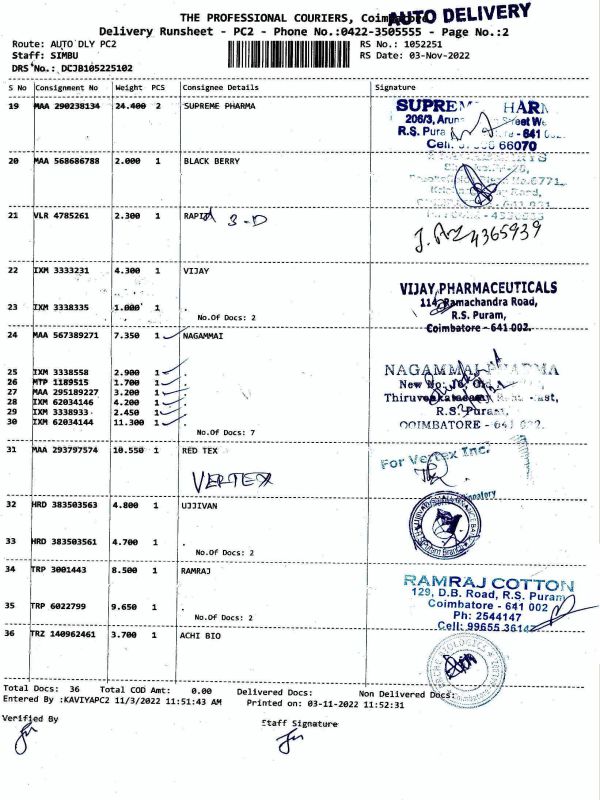 AUTO DELIVERY
THE PROFESSIONAL COURIERS, Coimbatore
Delivery Runsheet - PC2 - Phone No.:0422-3505555 - Page No.:2
Route: AUTO DLY PC2 RS No.: 1052251
Staff: SIMBU RS Date: 03-Nov-2022
DRS No.: DCJB105225102
S No Consignment No Weight PCS Consignee Details Signature
19 MAA 290238134 24.400 2 SUPREME PHARMA
206/3, Street
R.S. Pura - 641
Cell. 66070
20 MAA 568686788 2.000 1 BLACK BERRY
21 VLR 4785261 2.300 1 RAPID 3-D
4365939
22 IXM 3333231 4.300 1 VIJAY
VIJAY PHARMACEUTICALS
114, Ramachandra Road,
R.S. Puram,
Coimbatore - 641 002.
23 IXM 3338335 1.000 1 .
No.Of Docs: 2
24 MAA 567389271 7.350 1 NAGAMMAI
NAGAMMAI PHARMA
New No:
Thiruvenkatasamy Road East,
R.S. Puram,
COIMBATORE - 641 002.
25 IXM 3338558 2.900 1 .
26 MTP 1189515 1.700 1 .
27 MAA 295189227 3.200 1 .
28 IXM 62034146 4.200 1 .
29 IXM 3338933 2.450 1 .
30 IXM 62034144 11.300 1 .
No.Of Docs: 7
31 MAA 293797574 10.550 1 RED TEX
VERTEX
For Vertex Inc.
Signatory
32 HRD 383503563 4.800 1 UJJIVAN
33 HRD 383503561 4.700 1 .
No.Of Docs: 2
34 TRP 3001443 8.500 1 RAMRAJ
RAMRAJ COTTON
129, D.B. Road, R.S. Puram
Coimbatore - 641 002
Ph: 2544147
Cell: 99655 36142
35 TRP 6022799 9.650 1 .
No.Of Docs: 2
36 TRZ 140962461 3.700 1 ACHI BIO
Total Docs: 36 Total COD Amt: 0.00 Delivered Docs: Non Delivered Docs:
Entered By :KAVIYAPC2 11/3/2022 11:51:43 AM Printed on: 03-11-2022 11:52:31
Verified By Staff Signature